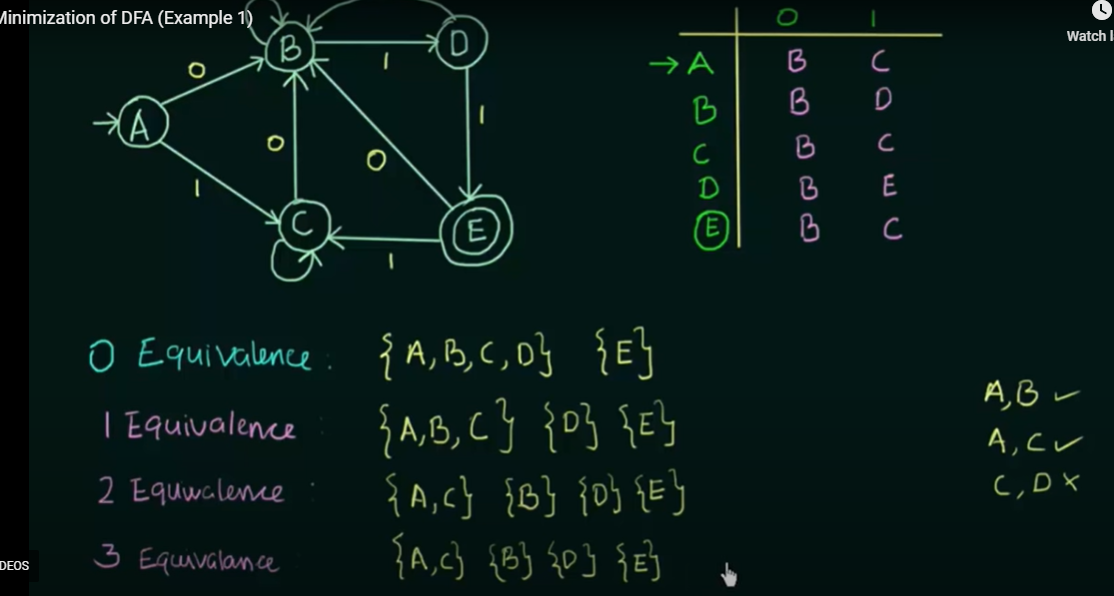 Minimization of DFA (Example 1)
Watch l
B
D
A
C
E
0
1
1
0
0
1
1
0 1
→ A B C
B B D
C B C
D B E
E B C
0 Equivalence : { A, B, C, D} {E}
1 Equivalence : { A, B, C } {D} {E}
2 Equivalence : { A, C} {B} {D} {E}
3 Equivalance {A, C} {B} {D} {E}
A, B ✓
A, C ✓
C, D ×
DEOS